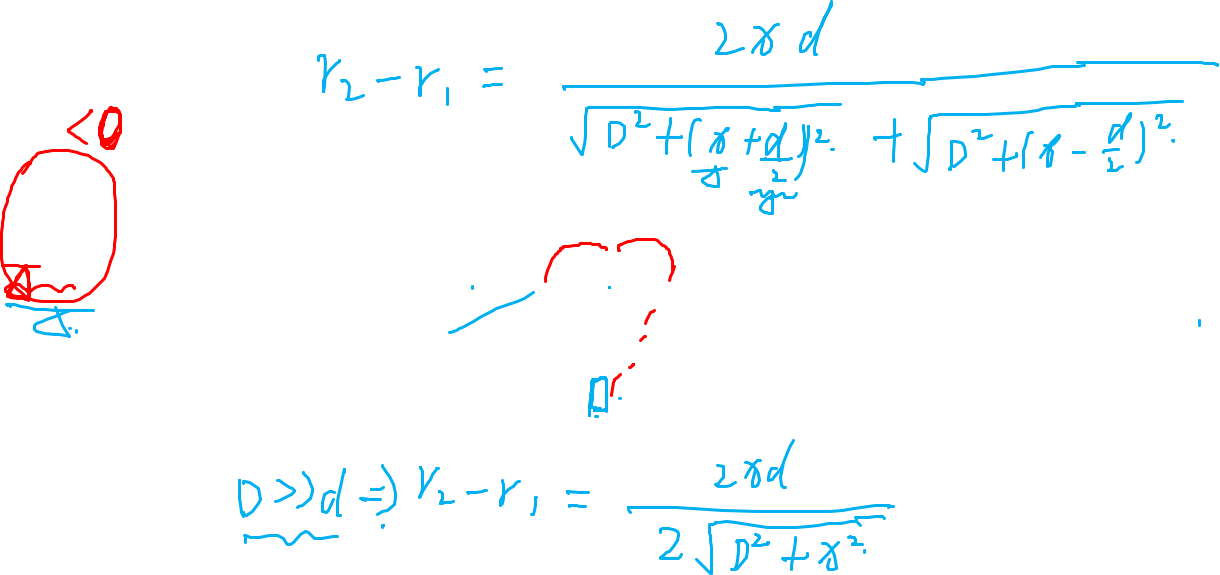 r₂ - r₁ = 2xd / (√(D² + (x + d/2)²) + √(D² + (x - d/2)²))
< 0
D >> d ⇒ r₂ - r₁ = 2xd / (2√(D² + x²))